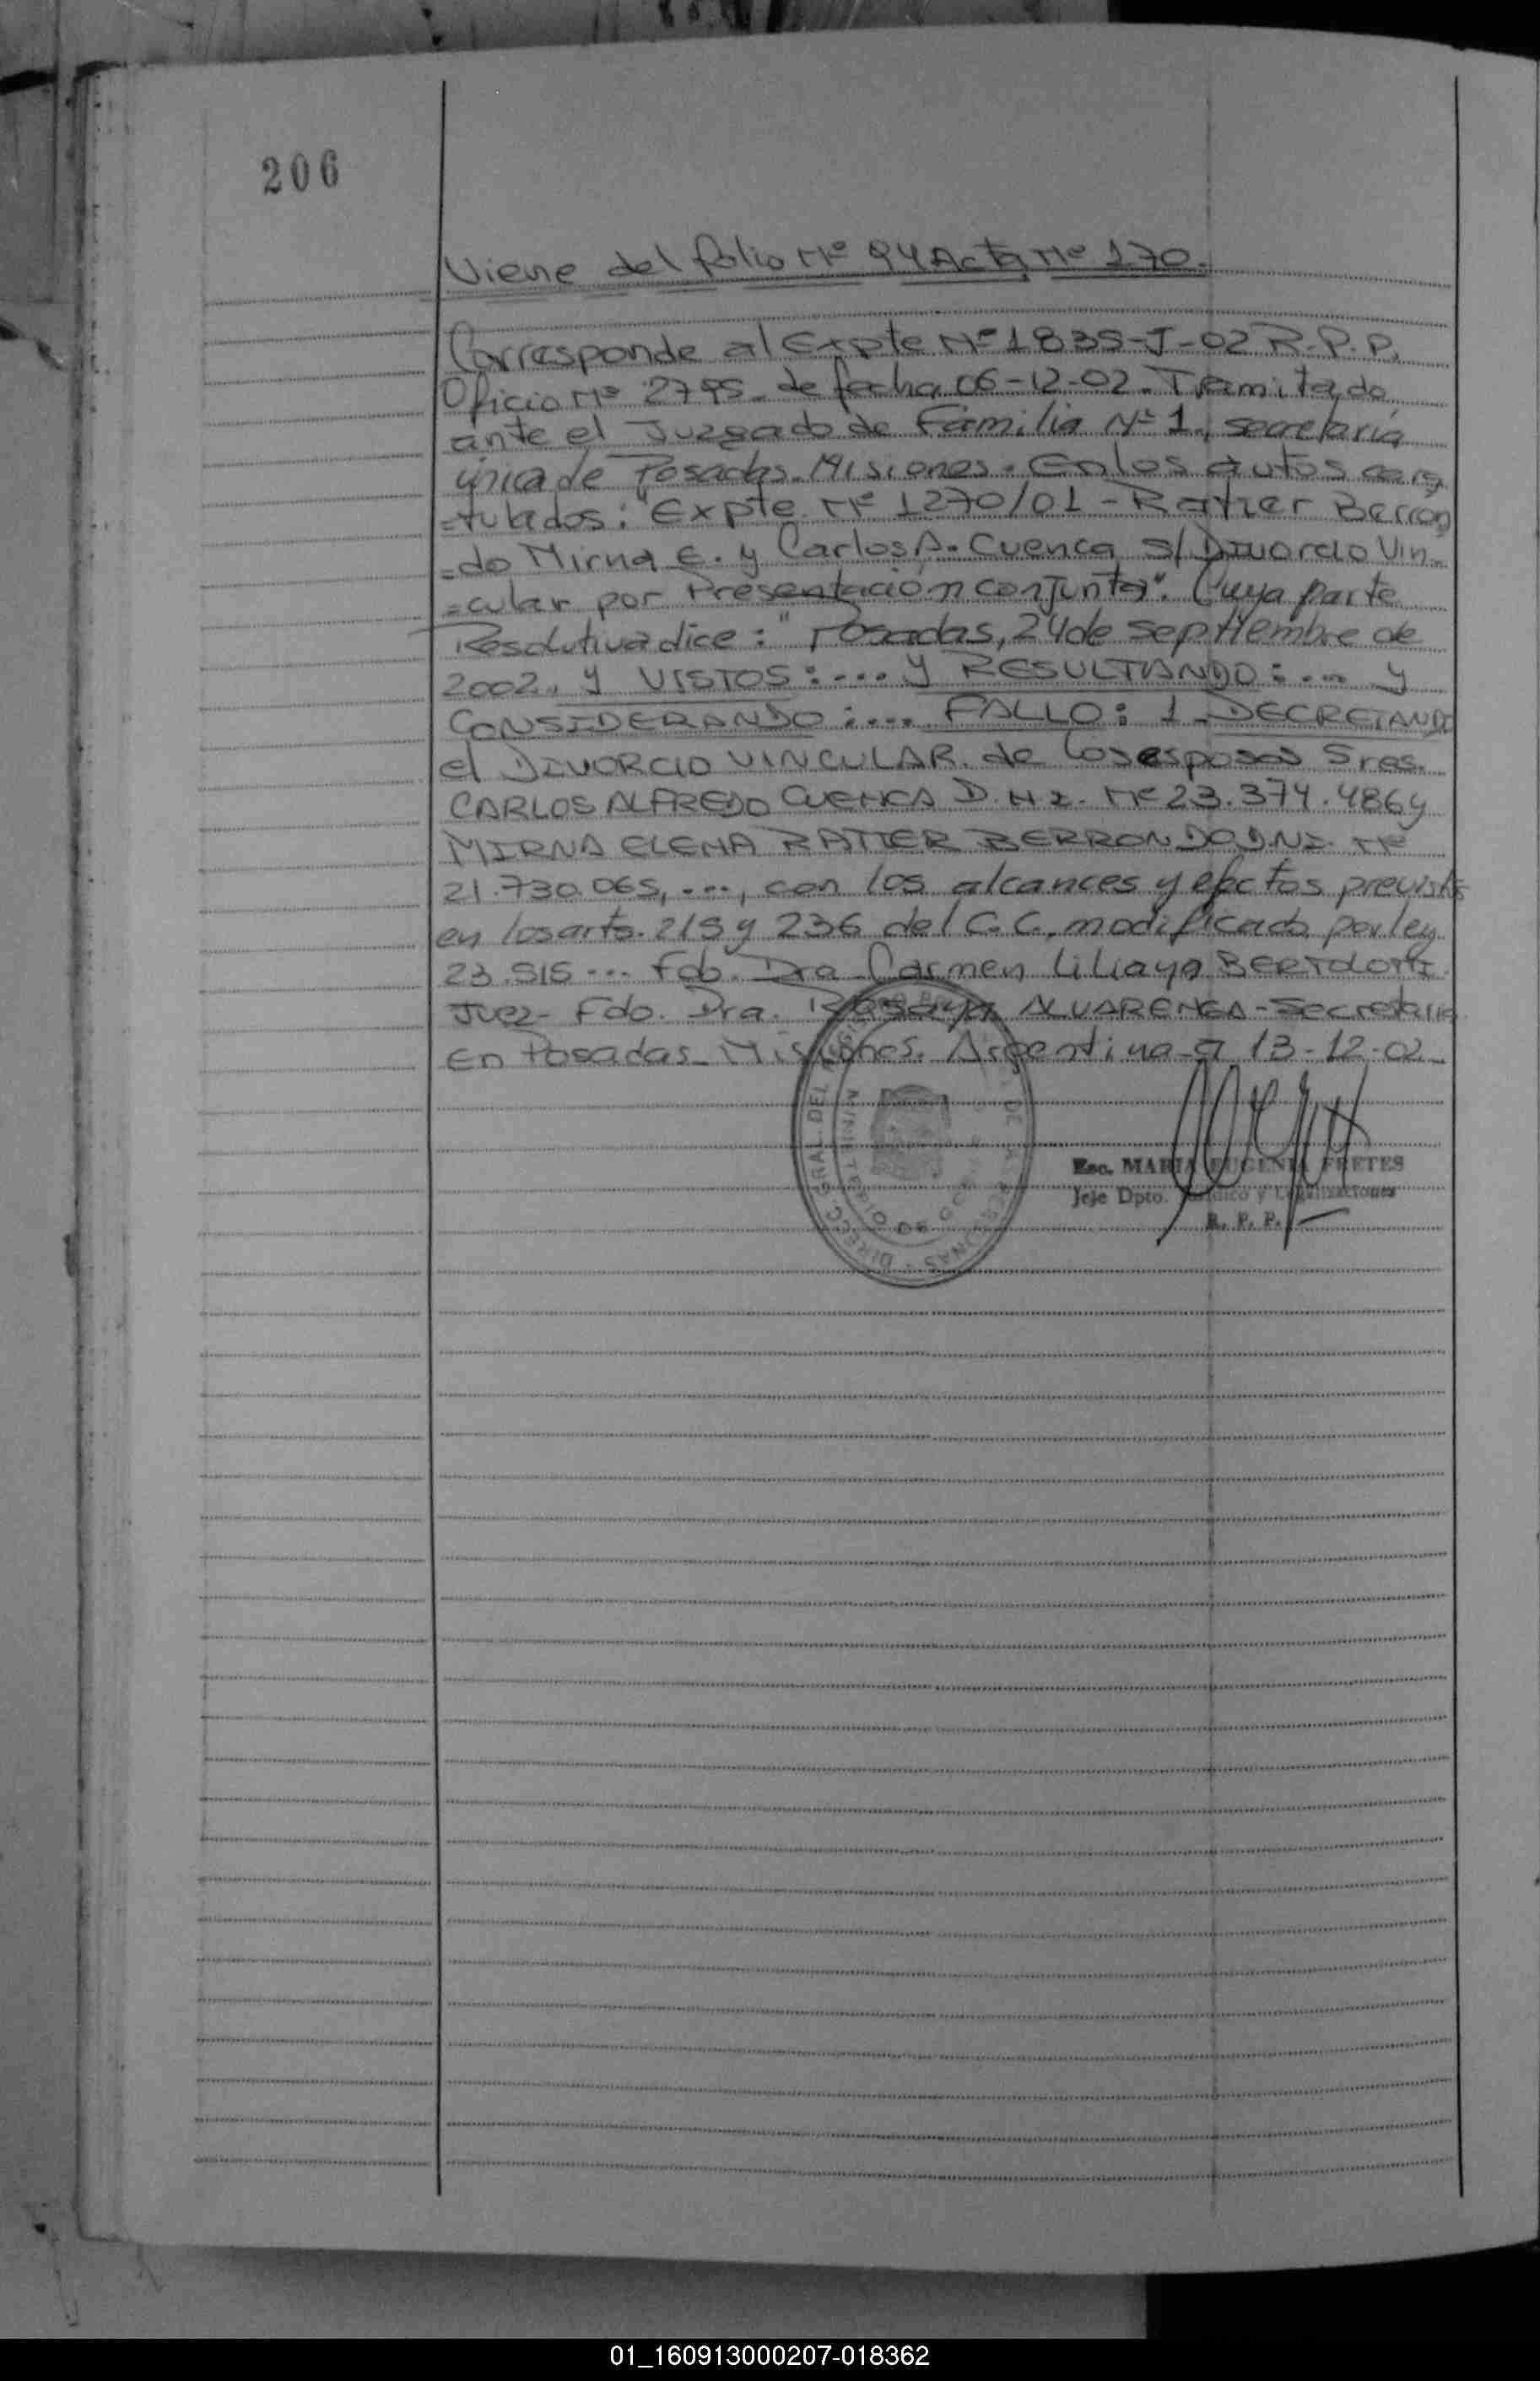 206
Viene del folio Nº 94 Acta Nº 170.
Corresponde al Expte Nº 1835-J-02 R.P.P.
Oficio Nº 2795- de fecha 06-12-02. Tramitado
ante el Juzgado de Familia Nº 1, secretaria
única de Posadas-Misiones. En los autos cara
=tulados: "Expte Nº 1270/01 - Ratier Berron
=do Mirna E. y Carlos A. Cuenca s/ Divorcio Vin-
=cular por Presentación conjunta". Cuya parte
Resolutiva dice: "Posadas, 24 de septiembre de
2002. y VISTOS:.... y RESULTANDO:.... y
CONSIDERANDO:.... FALLO: 1-DECRETANDO
el DIVORCIO VINCULAR. de los esposos Sres.
CARLOS ALFREDO CUENCA D.N.I. Nº 23.374.486 y
MIRNA ELENA RATIER BERRONDO D.N.I. Nº
21.730.065, ...., con los alcances y efectos previstos
en los arts. 215 y 236 del C.C. modificado por ley
23.515.... Fdo. Dra Carmen Liliana BERTOLOTTI
Juez- Fdo. Dra. ALVARENGA-Secretaria
En Posadas-Misiones. Argentina-a 13-12-02-
DIRECC. GRAL. DEL DE LAS PERSONAS
MINISTERIO DE GOBIERNO
Esc. MARIA EUGENIA FRETES
Jefe Dpto. Jurídico y Legalizaciones
R. P. P.
01_160913000207-018362